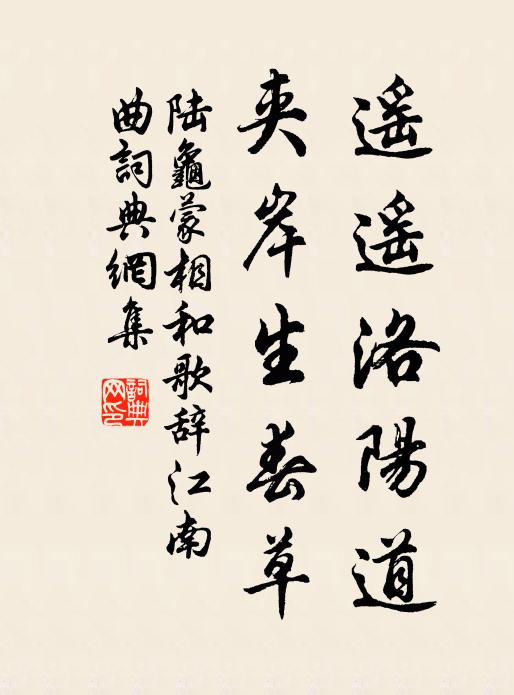 遥遥洛陽道
夾岸生春草
陆龜蒙相和歌辞江南
曲詞典網集
詞典网印